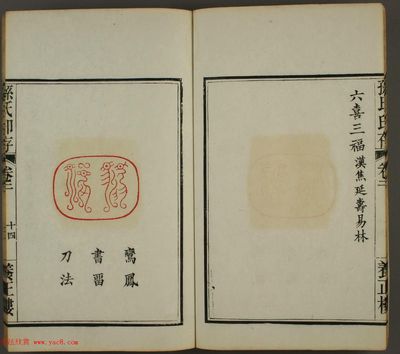 六喜三福 漢焦延壽易林
孫氏印存
卷三
養正樓
鸞鳳
書畱
刀法
孫氏印存
卷三
十四
養正樓
www.yac8.com